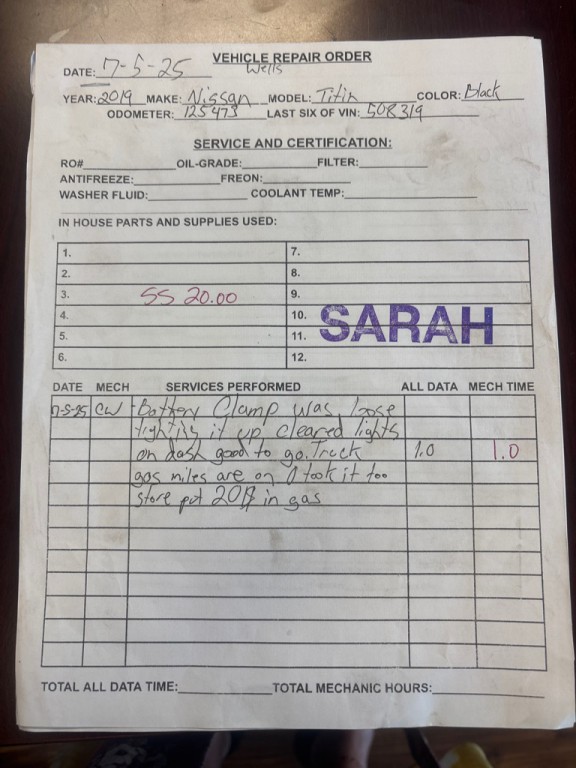 VEHICLE REPAIR ORDER
DATE: 7-5-25 Wells
YEAR: 2019 MAKE: Nissan MODEL: Titin COLOR: Black
ODOMETER: 125473 LAST SIX OF VIN: 508319
SERVICE AND CERTIFICATION:
RO# OIL-GRADE: FILTER:
ANTIFREEZE: FREON:
WASHER FLUID: COOLANT TEMP:
IN HOUSE PARTS AND SUPPLIES USED:
1. 7.
2. 8.
3. SS 20.00 9.
4. 10. SARAH
5. 11.
6. 12.
DATE MECH SERVICES PERFORMED ALL DATA MECH TIME
7-5-25 CW Battery Clamp was loose
tighting it up, cleared lights
on dash good to go. Truck 1.0 1.0
gas miles are on 0 took it too
store put in gas
TOTAL ALL DATA TIME: TOTAL MECHANIC HOURS: